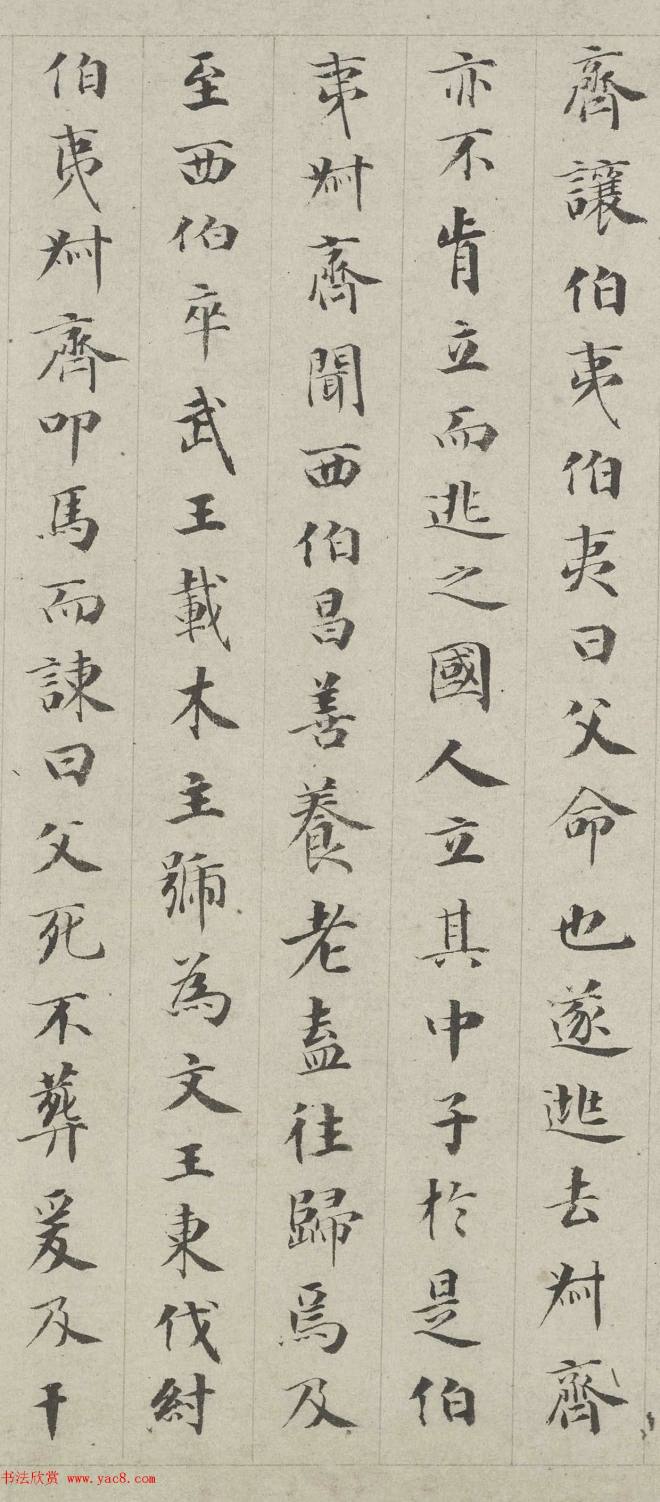 齊讓伯夷伯夷曰父命也遂逃去叔齊
亦不肯立而逃之國人立其中子於是伯
夷叔齊聞西伯昌善養老盍往歸焉及
至西伯卒武王載木主號為文王東伐紂
伯夷叔齊叩馬而諫曰父死不葬爰及干
书法欣赏 www.yac8.com